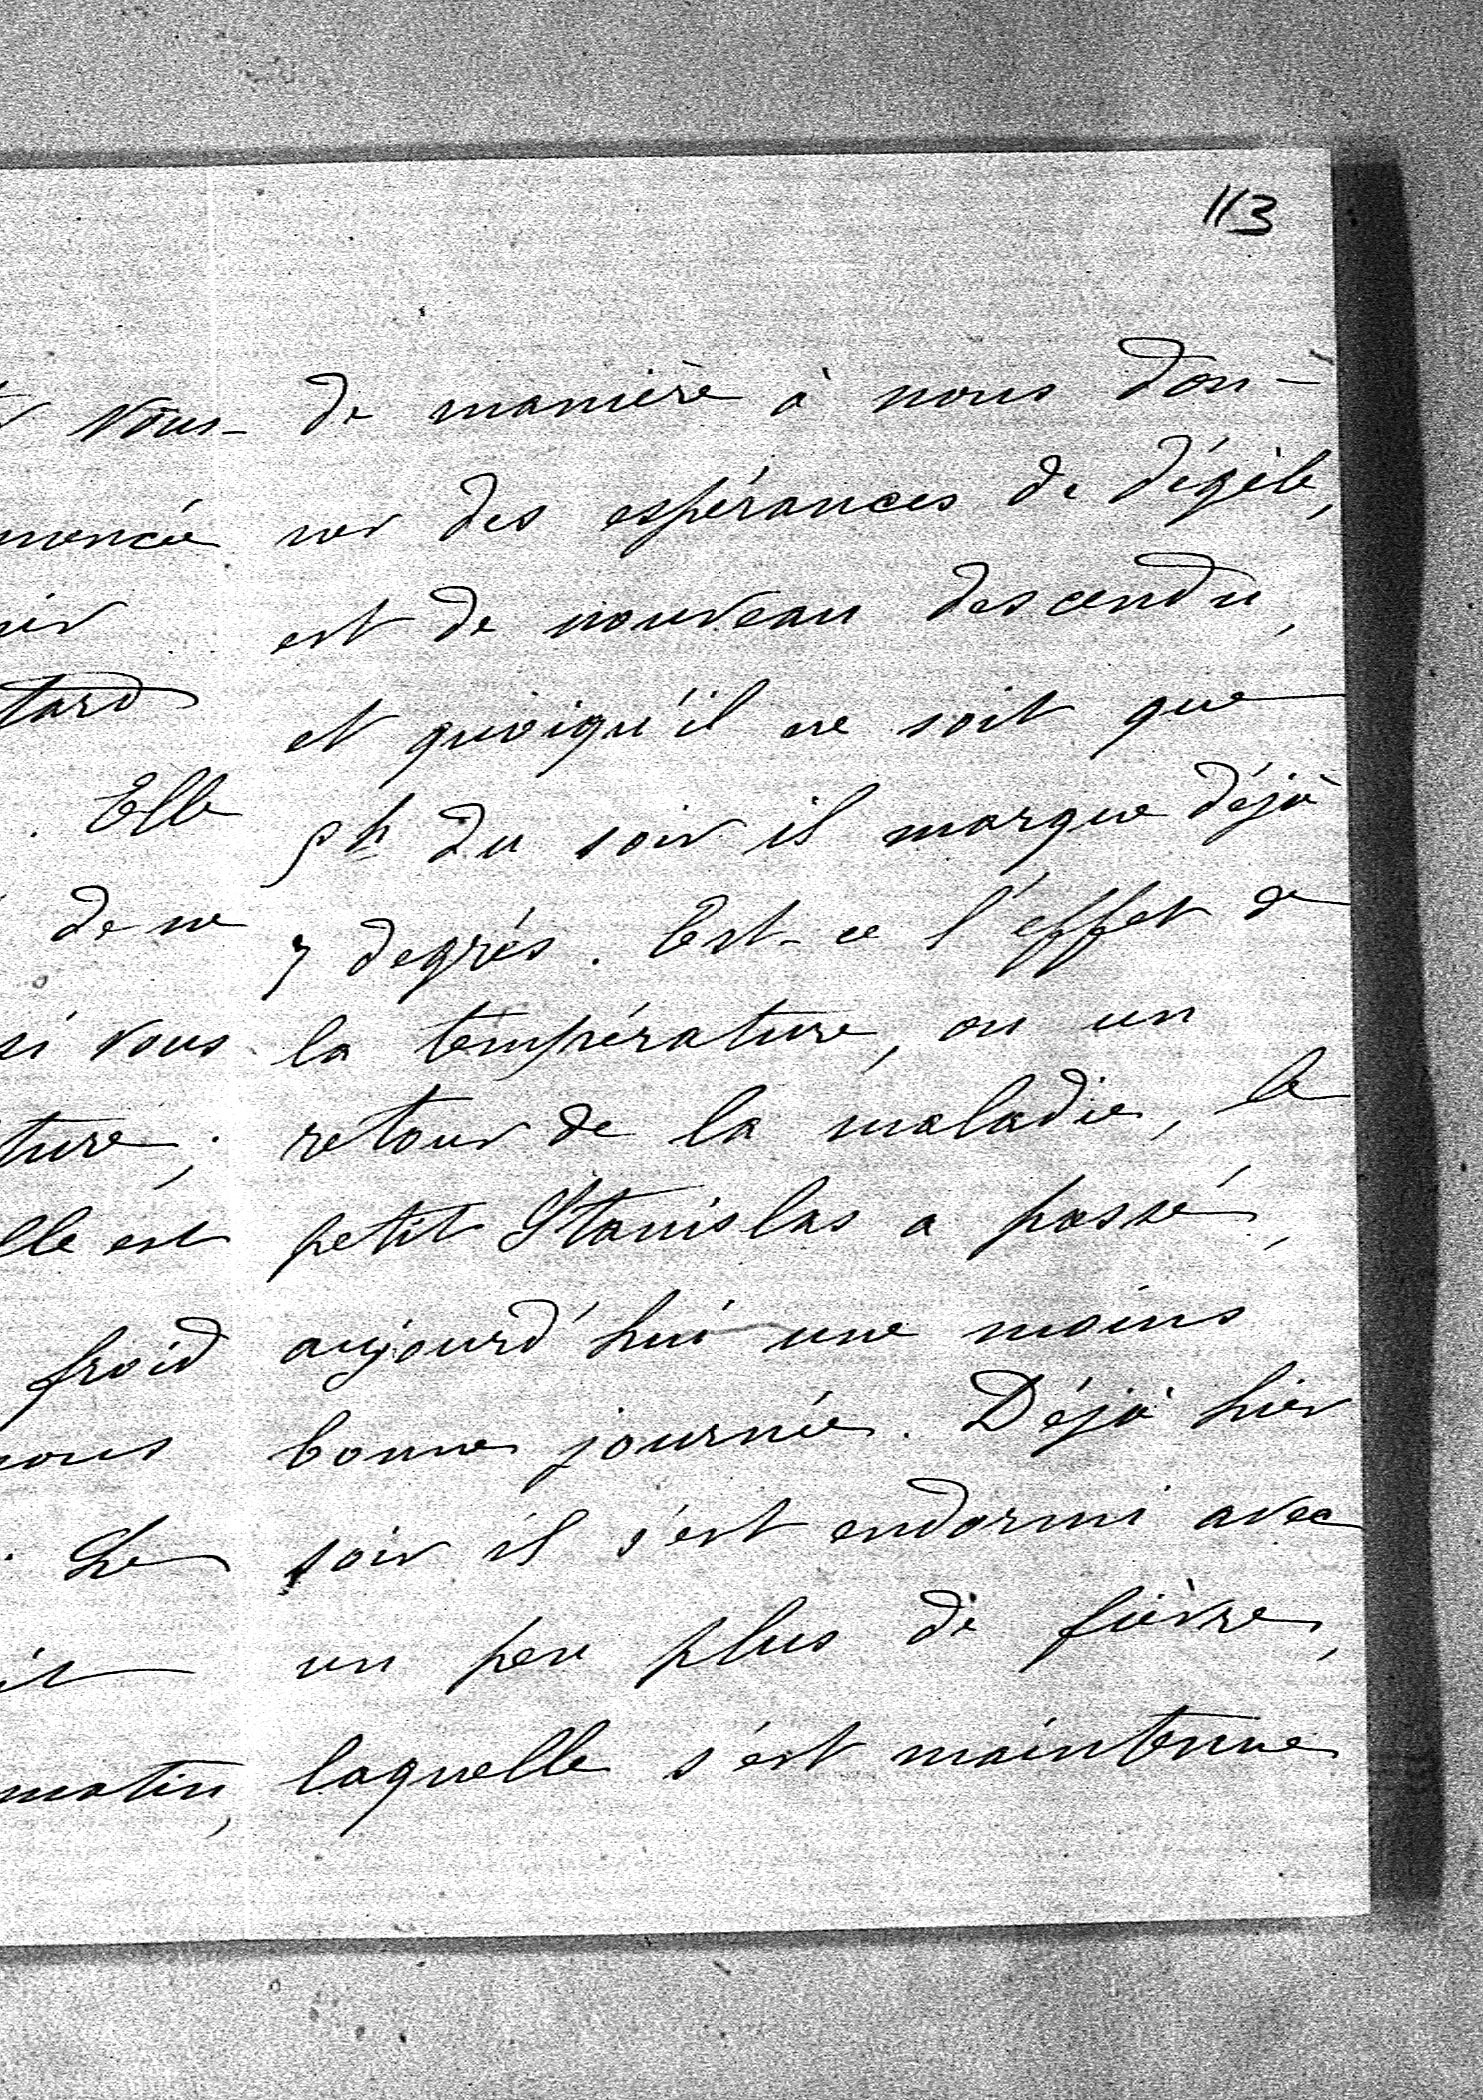 113
vous-
mencée
nir
tard
. Elle
de ne
si vous
ture,
elle est
froid
nous
. Le
it
matin,
de manière à nous don-
ner des espérances de dégèle,
est de nouveau descendu,
et quoiqu'il ne soit que
5h du soir il marque déjà
7 degrés. Est-ce l'effet de
la température, ou un
retour de la maladie, le
petit Stanislas a passé,
aujourd'hui une moins
bonne journée. Déjà hier
soir il s'est endormi avec
un peu plus de fièvre,
laquelle s'est maintenue